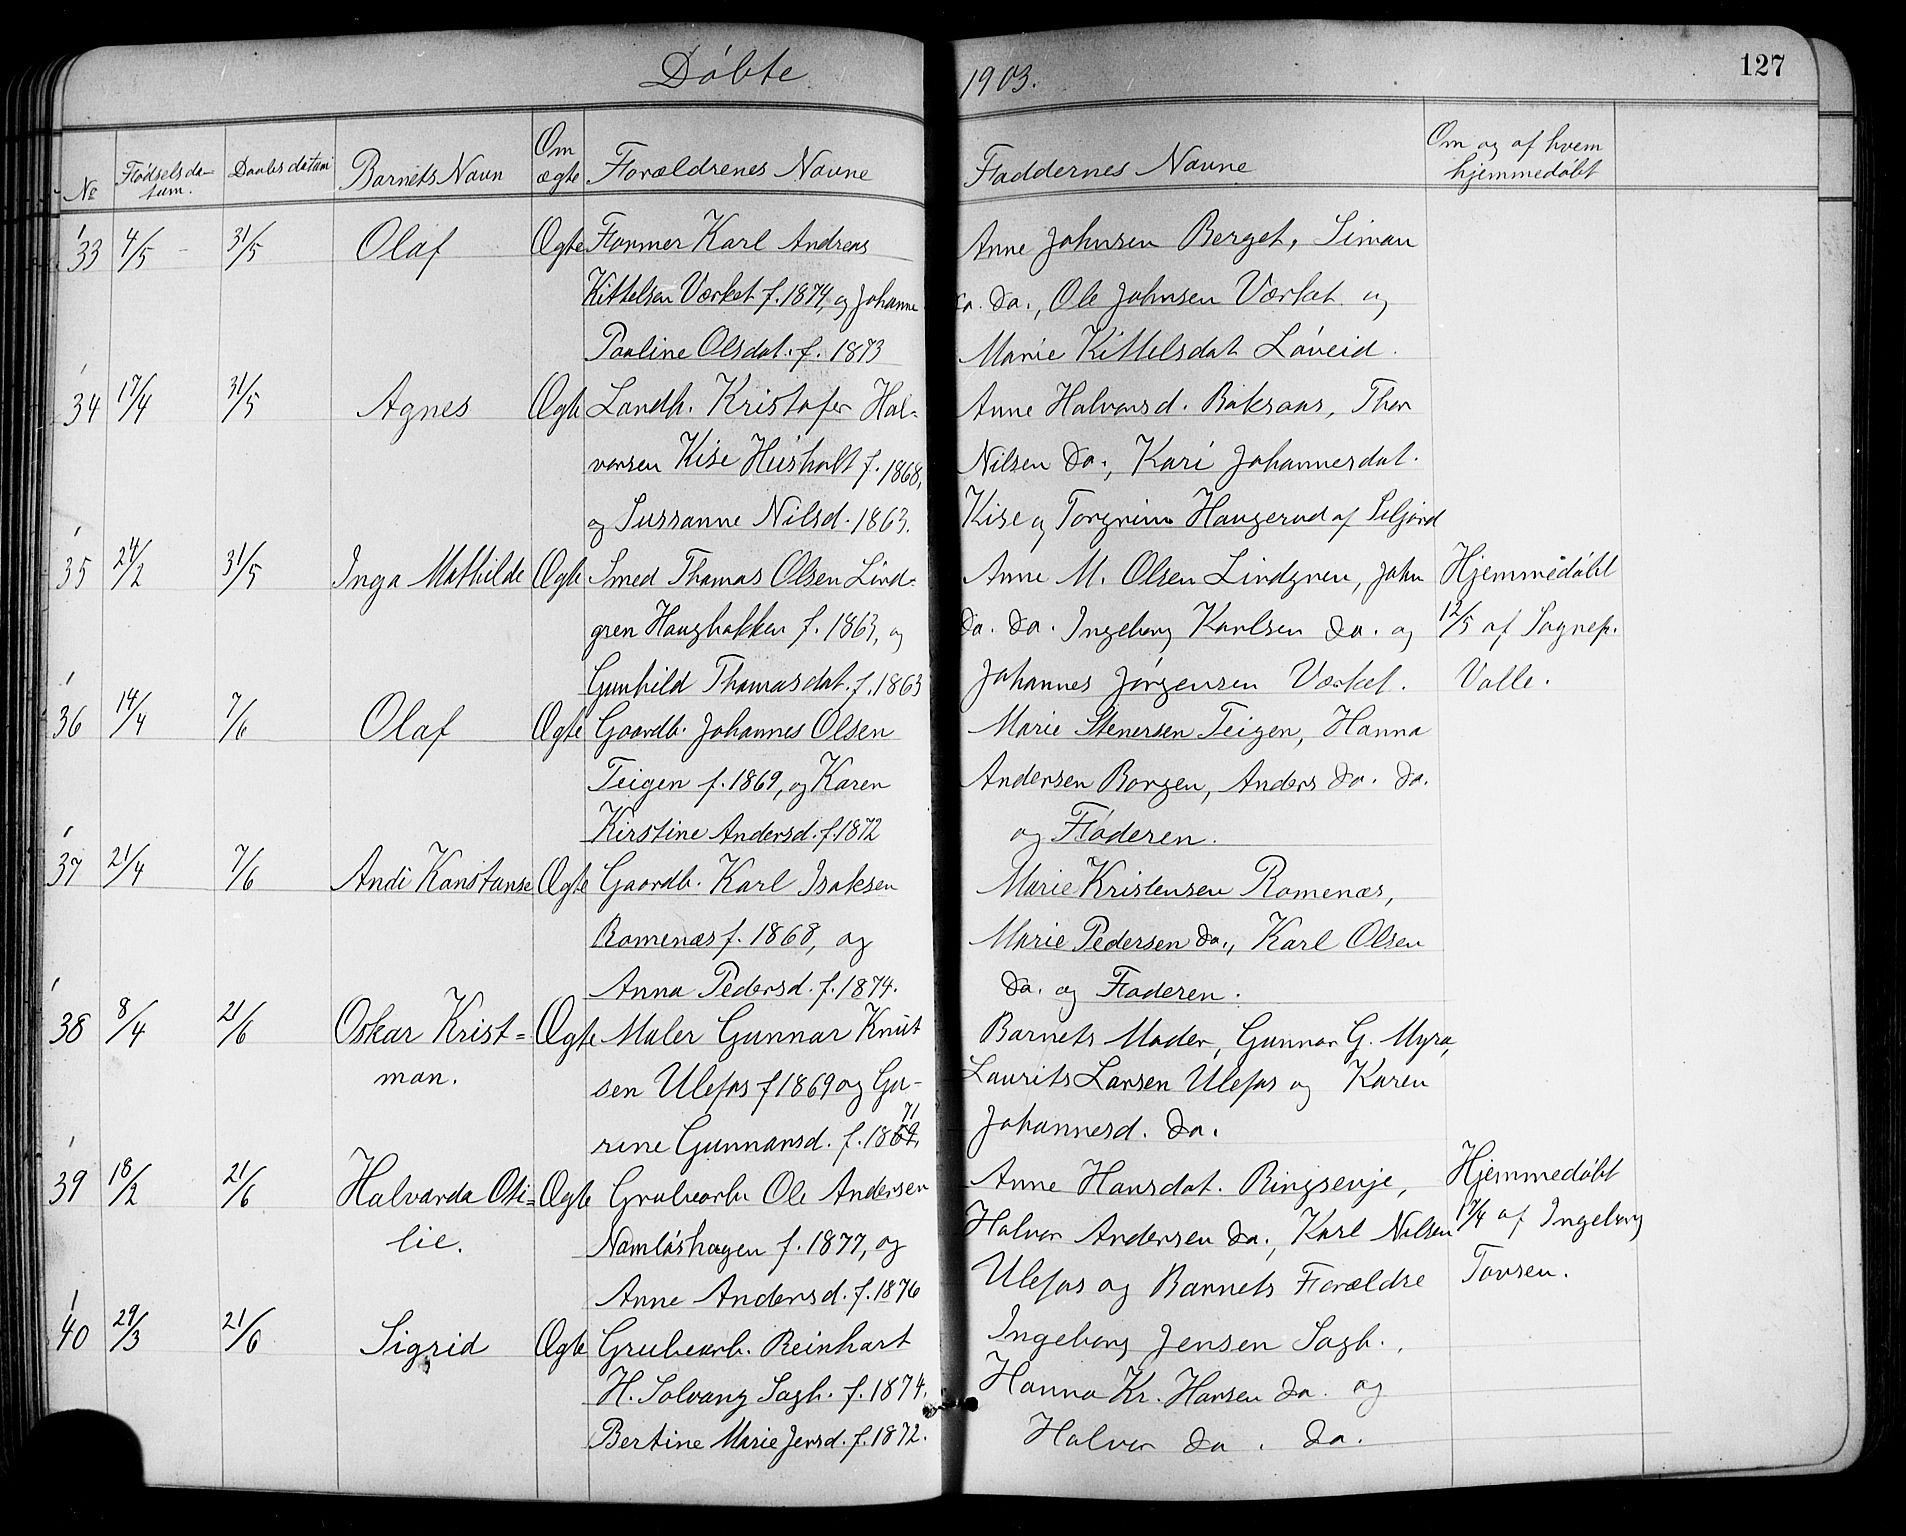 Döbte 1903. 127
№ Födselsda-tum. Daabsdatum Barnets Navn Om ægte Forældrenes Navne Faddernes Navne Om og af hvem hjemmedöbt
33 4/5 31/5 Olaf Ægte Former Karl Andreas Anne Johnsen Berget, Simon
Kittelsen Værket f. 1874, og Johanne do. do., Ole Johnsen Værket og
Pauline Olsdat. f. 1873 Marie Kittelsdat Löveid.
34 17/4 31/5 Agnes Ægte Landh. Kristofer Hal- Anne Halvorsd. Baksaas, Thor
vorsen Kise Heisholt f. 1868, Nilsen do., Kari Johannesdat.
og Sussanne Nilsd. 1863. Kise og Torgrim Haugerud af Seljord
35 24/2 31/5 Inga Mathilde Ægte Smed Thomas Olsen Lind- Anne M. Olsen Lindgren, John Hjemmedöbt
gren Haugbakken f. 1863, og do. do. Ingeborg Karlsen do. og 12/5 af Sognep.
Gunhild Thomasdat. f. 1863 Johannes Jörgensen Værket. Valle.
36 14/4 7/6 Olaf Ægte Gaardb. Johannes Olsen Marie Stenersen Teigen, Hanna
Teigen f. 1869, og Karen Andersen Borgen, Anders do. do.
Kirstine Andersd. f. 1872 og Faderen.
37 21/4 7/6 Andi Konstanse Ægte Gaardb. Karl Isaksen Marie Kristensen Romenæs,
Romenæs f. 1868, og Marie Pedersen do., Karl Olsen
Anna Pedersd. f. 1874. do. og Faderen.
38 8/4 21/6 Oskar Krist= Ægte Maler Gunnar Knut Barnets Moder, Gunnar G. Myra,
man. sen Ulefos f 1869 og Gu- Laurits Larsen Ulefos og Karen
rine Gunnarsd. f. 1869. 71 Johannesd. do.
39 18/2 21/6 Halvarda Oti= Ægte Grubearb. Ole Andersen Anne Hansdat. Ringsevje, Hjemmedöbt
lie. Namlöshagen f. 1877, og Halvor Andersen do., Karl Nilsen 17/4 af Ingeborg
Anne Andersd. f. 1876 Ulefos og Barnets Forældre Tovsen.
40 29/3 21/6 Sigrid Ægte Grubearb. Reinhart Ingeborg Jensen Sagb.,
H. Solvang Sagb. f. 1874, Hanna Kr. Hansen do. og
Bertine Marie Jensd. f. 1872. Halvor do. do.